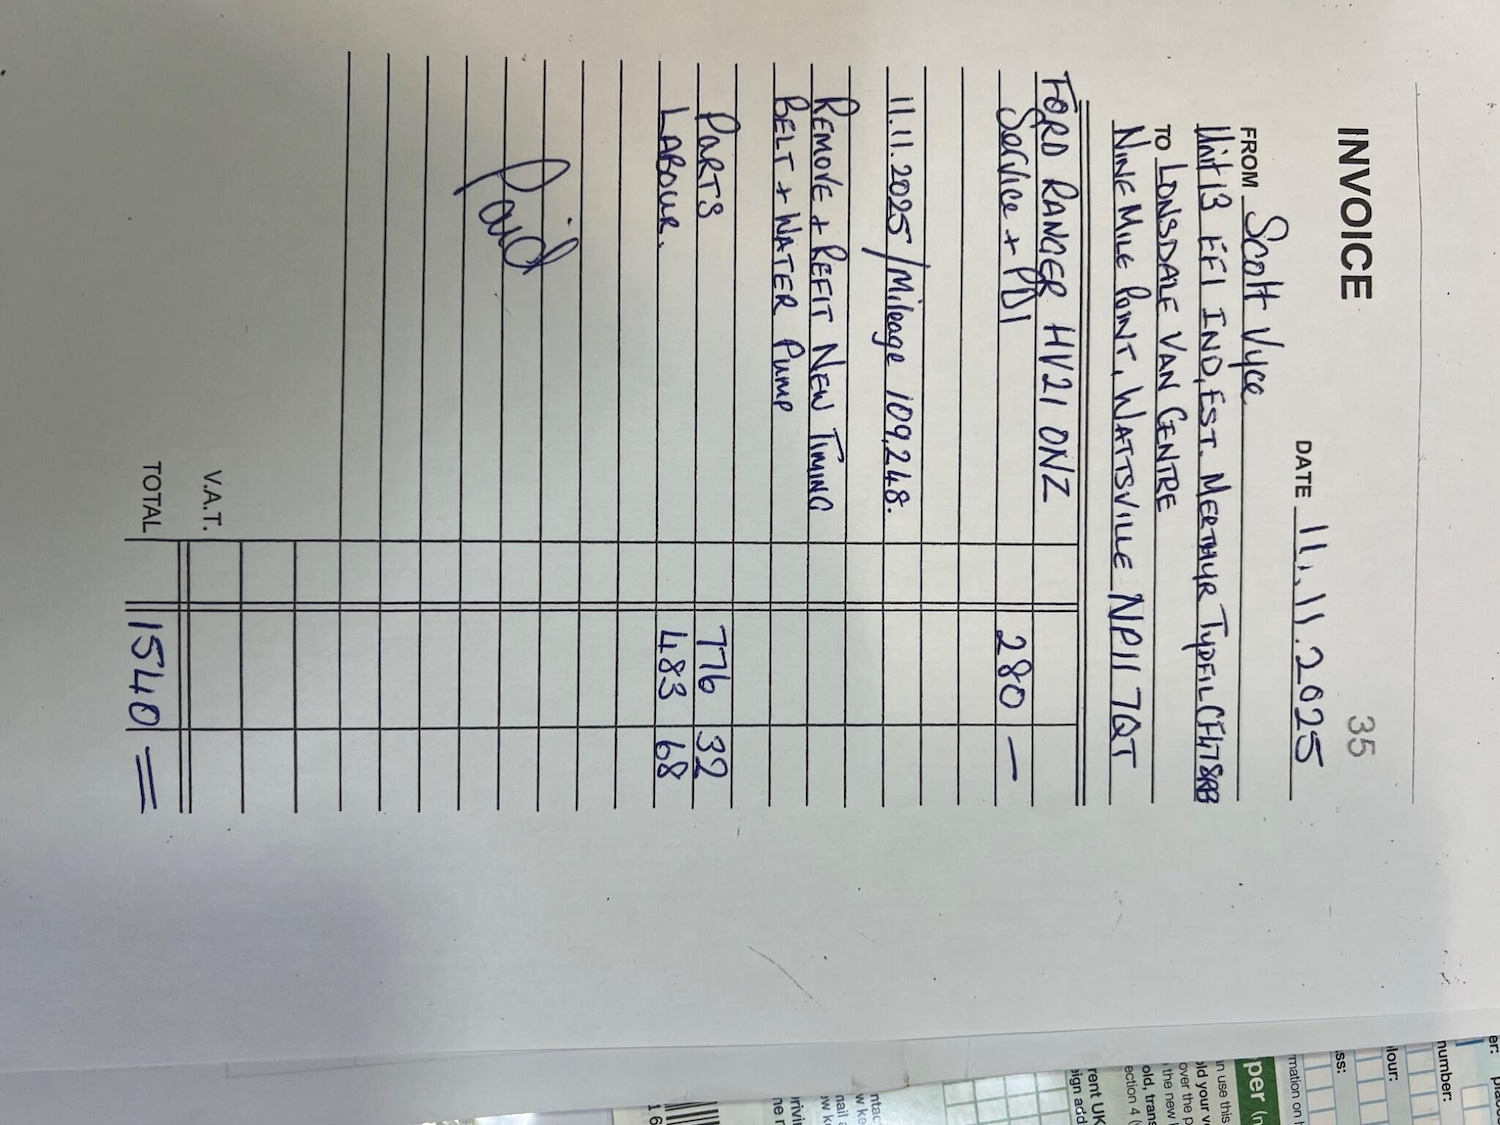 35
INVOICE
DATE 11.11.2025
FROM Scott Vyce
Unit 13 EFI IND, EST. MERTHYR TYDFIL CF47 8RB
TO LONSDALE VAN CENTRE
NINE MILE POINT, WATTSVILLE NP11 7QT
FORD RANGER HV21 ONZ
Service + PDI 280 —
11.11.2025 / Mileage 109,248.
REMOVE + REFIT NEW TIMING
BELT + WATER PUMP
PARTS 776 32
LABOUR. 483 68
Paid
V.A.T.
TOTAL 1540 =
number:
lour:
ss:
rmation on
per
n use this
old your v
over the p
the new
old, trans
ection 4
rent UK
ign add